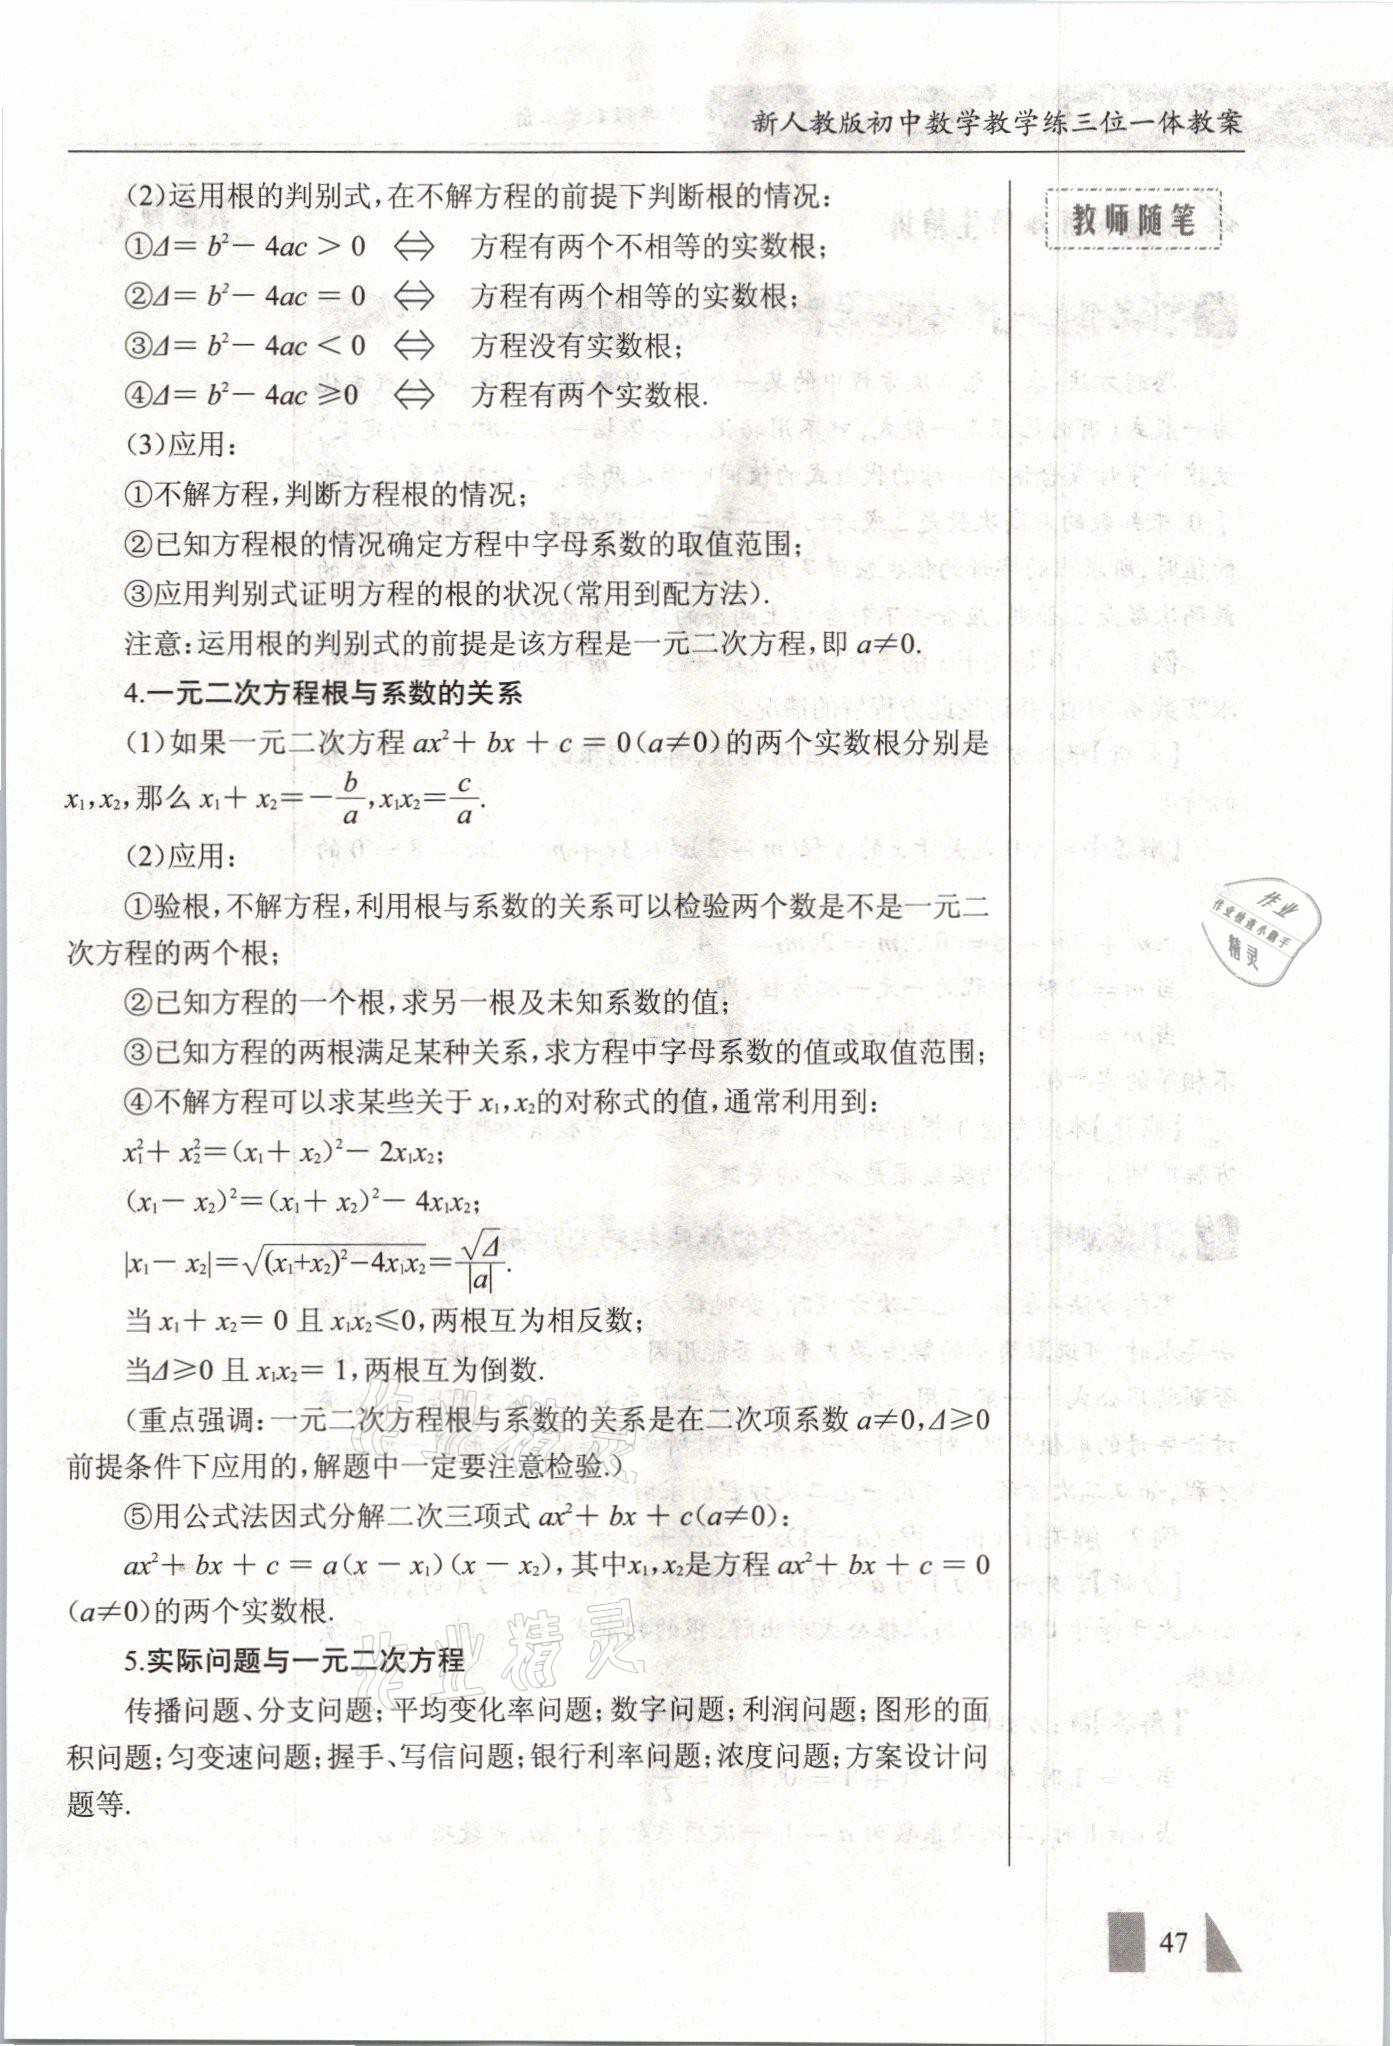 新人教版初中数学教学练三位一体教案
教师随笔
(2)运用根的判别式,在不解方程的前提下判断根的情况:
①Δ= b²− 4ac > 0 ⇔ 方程有两个不相等的实数根;
②Δ= b²− 4ac = 0 ⇔ 方程有两个相等的实数根;
③Δ= b²− 4ac < 0 ⇔ 方程没有实数根;
④Δ= b²− 4ac ≥0 ⇔ 方程有两个实数根.
(3)应用:
①不解方程,判断方程根的情况;
②已知方程根的情况确定方程中字母系数的取值范围;
③应用判别式证明方程的根的状况(常用到配方法).
注意:运用根的判别式的前提是该方程是一元二次方程,即 a≠0.
4.一元二次方程根与系数的关系
(1)如果一元二次方程 ax²+ bx + c = 0(a≠0)的两个实数根分别是
x₁,x₂,那么 x₁+ x₂=−b/a,x₁x₂=c/a.
(2)应用:
①验根,不解方程,利用根与系数的关系可以检验两个数是不是一元二
次方程的两个根;
②已知方程的一个根,求另一根及未知系数的值;
③已知方程的两根满足某种关系,求方程中字母系数的值或取值范围;
④不解方程可以求某些关于 x₁,x₂的对称式的值,通常利用到:
x₁²+ x₂²=(x₁+ x₂)²− 2x₁x₂;
(x₁− x₂)²=(x₁+ x₂)²− 4x₁x₂;
|x₁− x₂|=√((x₁+x₂)²−4x₁x₂)=√Δ/|a|.
当 x₁+ x₂= 0 且 x₁x₂≤0,两根互为相反数;
当Δ≥0 且 x₁x₂= 1,两根互为倒数.
(重点强调:一元二次方程根与系数的关系是在二次项系数 a≠0,Δ≥0
前提条件下应用的,解题中一定要注意检验.)
⑤用公式法因式分解二次三项式 ax²+ bx + c(a≠0):
ax²+ bx + c = a(x − x₁)(x − x₂),其中x₁,x₂是方程 ax²+ bx + c = 0
(a≠0)的两个实数根.
5.实际问题与一元二次方程
传播问题、分支问题;平均变化率问题;数字问题;利润问题;图形的面
积问题;匀变速问题;握手、写信问题;银行利率问题;浓度问题;方案设计问
题等.
作业
作业检查小助手
精灵
作业精灵
作业精灵
47